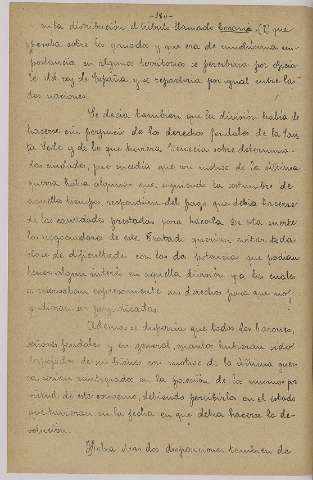 -180-
en la distribución el tributo llamado (1) que
pesaba sobre los ganados y que era de muchísima im-
portancia en algunos territorios se percibiera por oficia-
les del rey de España y se repartiera por igual entre las
dos naciones.
Se decía tambien que la división había de
hacerse sin perjuicio de los derechos feudales de la San-
ta Sede y de lo que tuviera Venecia sobre determina-
das ciudades, pues sucedía que con motivo de la última
guerra había algunas que, siguiendo la costumbre de
aquellos tiempos respondían del pago que debía hacerse
de las cantidades prestadas para hacerla. De esta suerte
los negociadores de este Tratado querían evitar toda
clase de dificultades con las potencias que podían
tener algun interés en aquella división y a las cuales
se reservaban expresamente sus derechos para que no
pudieran ser perjudicadas.
Además se disponía que todos los barones,
señores feudales y en general, cuantos hubieran sido
despojados de sus bienes con motivo de la última gue-
rra serían reintegrados en la posesión de los mismos por
virtud de este convenio, debiendo percibirlos en el estado
que tuvieran en la fecha en que debía hacerse la de-
volución.
Había otras dos disposiciones tambien de